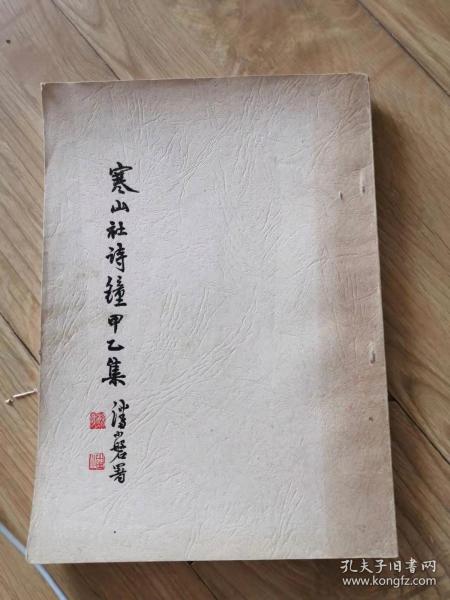 寒山社诗鐘甲乙集
潘小磐署
孔夫子旧书网
www.kongfz.com